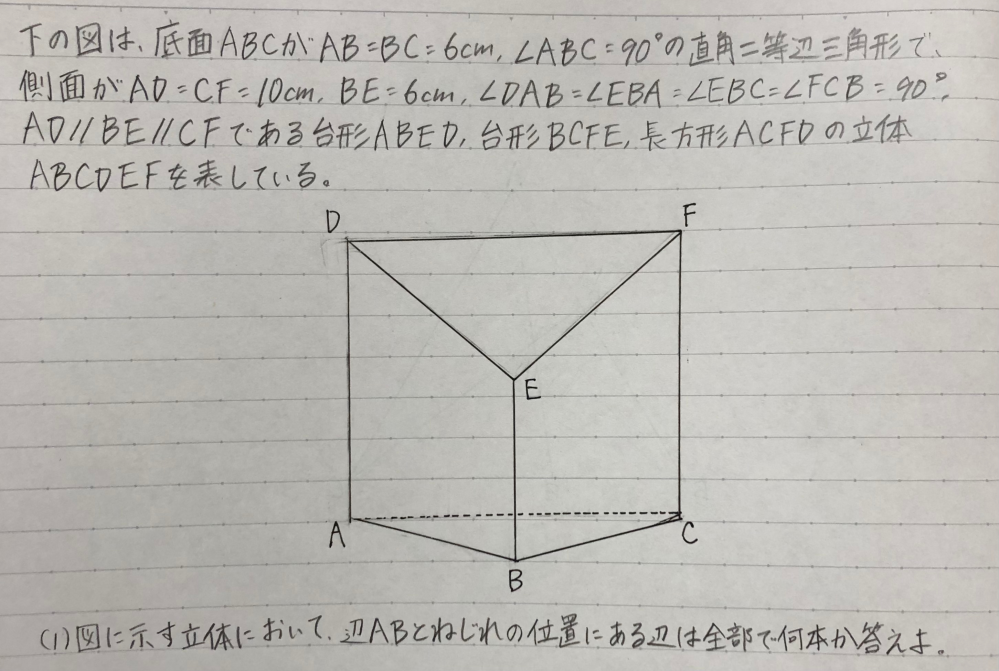 下の図は、底面ABCがAB=BC=6cm, ∠ABC=90°の直角二等辺三角形で、
側面がAD=CF=10cm, BE=6cm, ∠DAB=∠EBA=∠EBC=∠FCB=90°,
AD//BE//CFである台形ABED, 台形BCFE, 長方形ACFDの立体
ABCDEFを表している。
D
F
E
A
C
B
(1)図に示す立体において、辺ABとねじれの位置にある辺は全部で何本か答えよ。